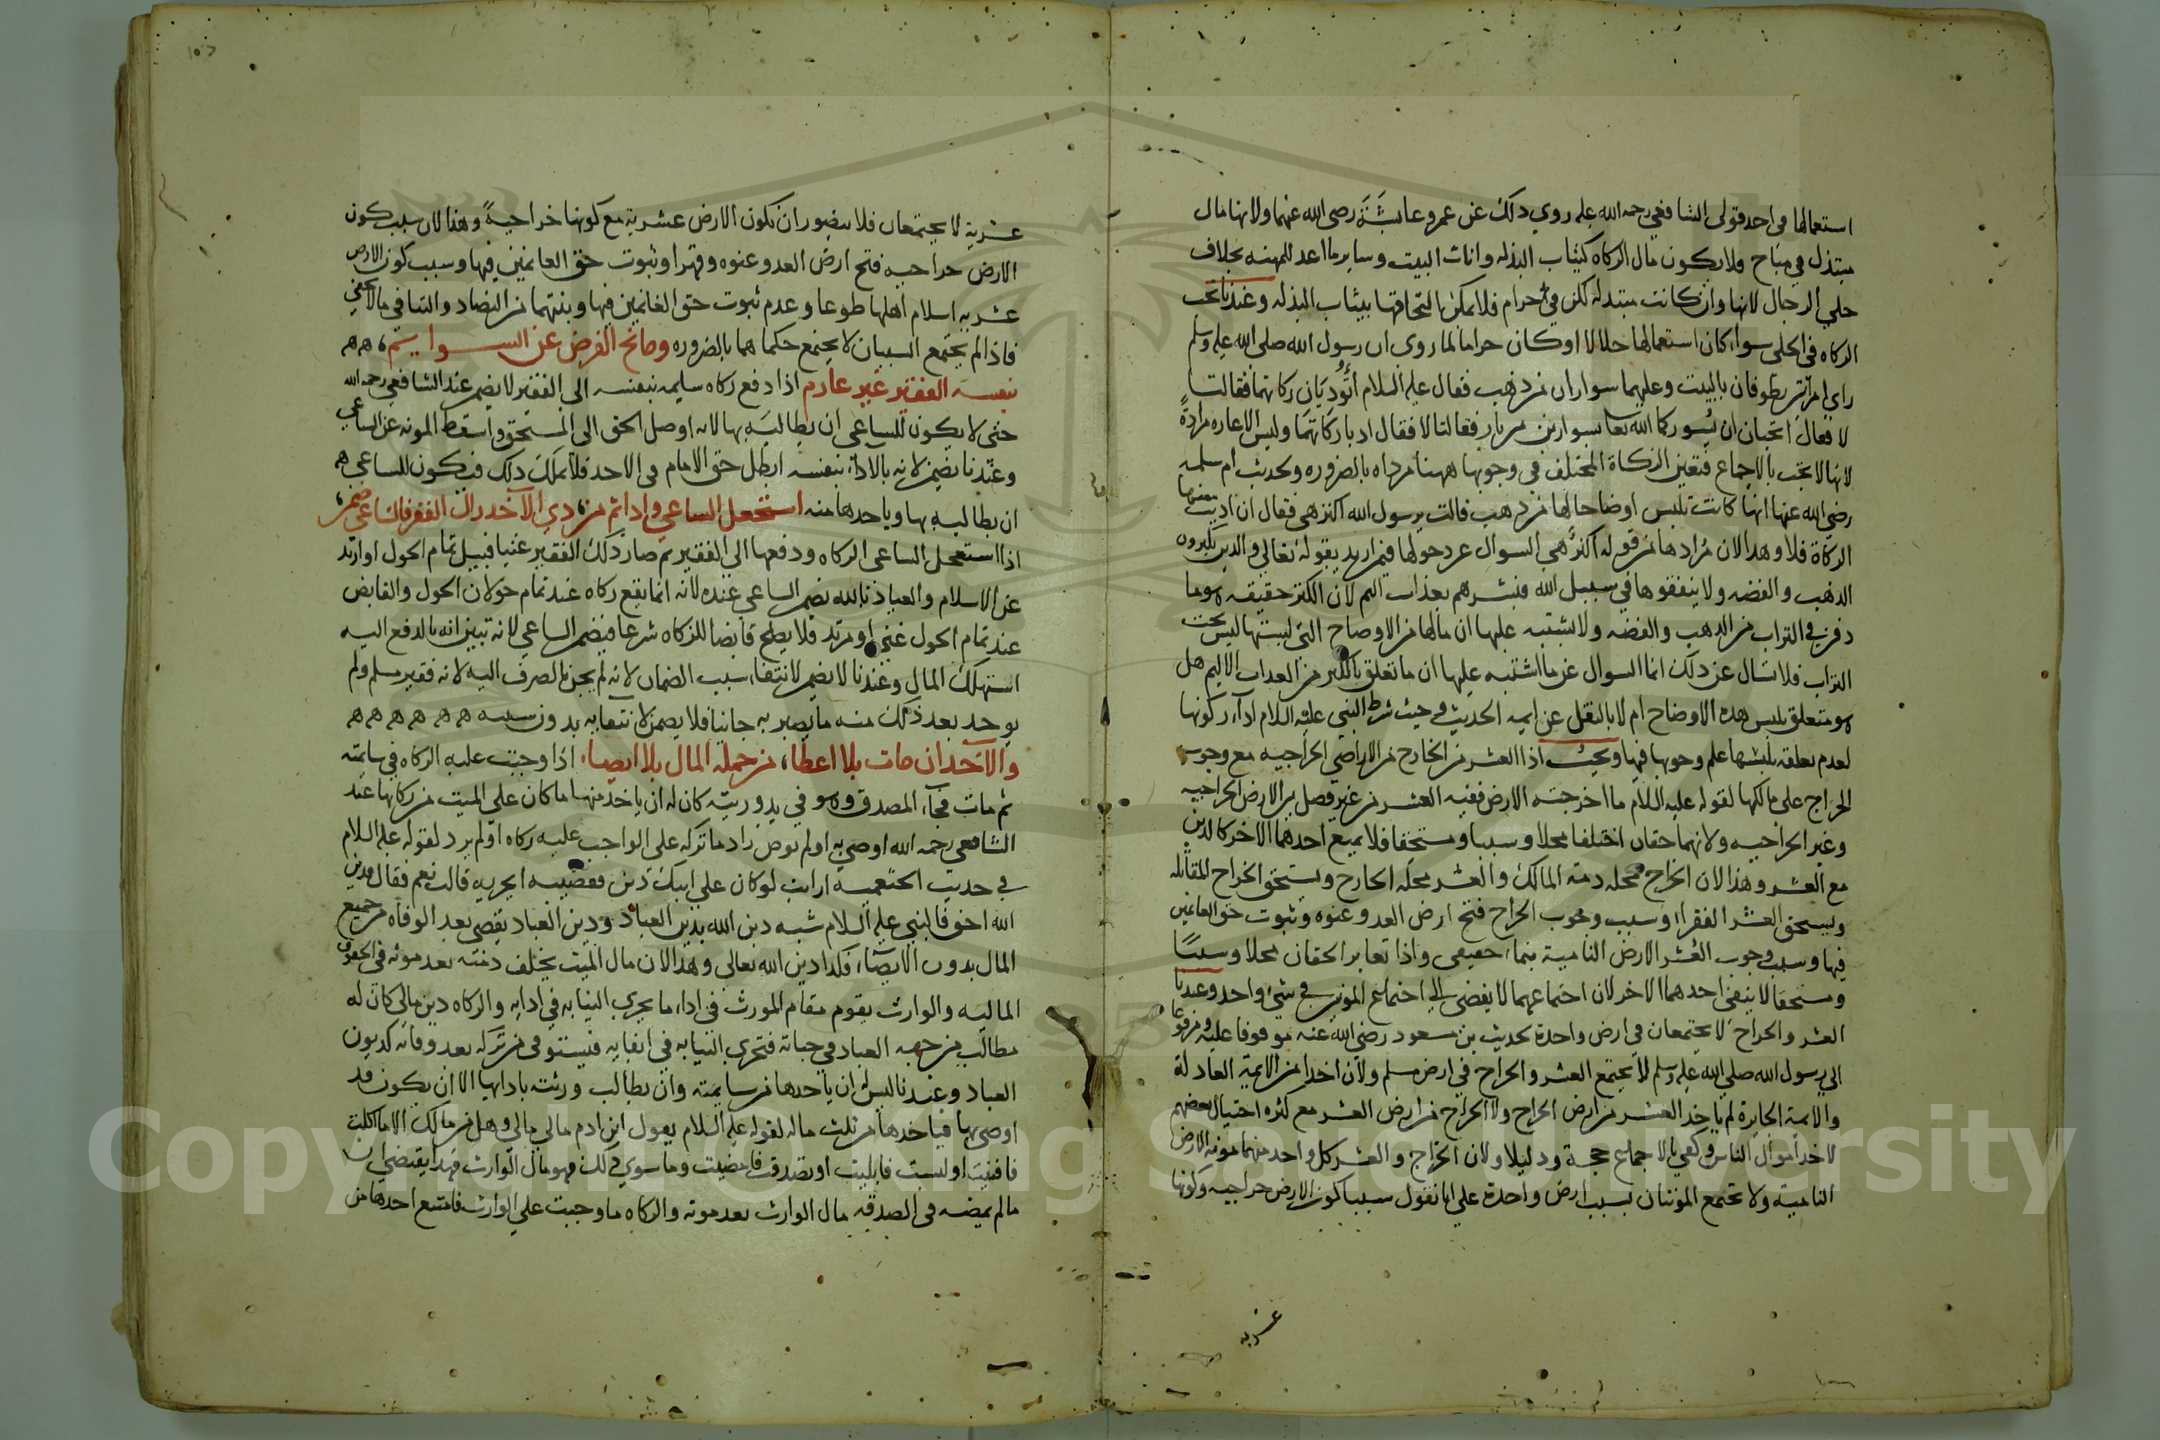 استعمالها في احد قولي الشافعي رحمه الله عليه روي ذلك عن عمر وعايشة رضي الله عنهما ولانها مال
مبتذل في مباح فلا يكون مال الزكاه كثياب البذله واثاث البيت وساير ما اعد للمهنه بخلاف
حلي الرجال لانها وان كانت مبتذله لكن في حرام فلا يمكن التحاقها بثياب البذله وعندنا تجب
الزكاه في الحلي سواء كان استعمالها حلالا او كان حراما لما روي ان رسول الله صلى الله عليه وسلم
راي امراتين يطوفان بالبيت وعليهما سواران من ذهب فقال عليه السلام أتؤديان زكاتهما فقالتا
لا فقال اتحبان ان يسوركما الله تعالى بسوارين من نار فقالتا لا فقال اديا زكاتهما وليس الاعاره مرادةً
لانها لا تجب بالاجماع فتعين الزكاة المختلف في وجوبها ههنا مراده بالضروره وحديث ام سلمه
رضي الله عنها انها كانت تلبس اوضاحا لها من ذهب قالت يرسول الله اكنز هي فقال ان اديت
الزكاة فلا وهذا لان مرادها من قوله اكنز هي السوال عن دخولها فيمن اريد بقوله تعالى والذين يكنزون
الذهب والفضه ولا ينفقوها في سبيل الله فبشرهم بعذاب اليم لان الكنز حقيقه هو ما
دفن في التراب من الذهب والفضه ولا يشتبه عليها ان مالها من الاوضاح التي لبستها ليس تحت
التراب فلا تسال عن ذلك انما السوال عن ما اشتبه عليها ان ما تعلق بالكنز من العذاب الاليم هل
هو متعلق بلبس هذه الاوضاح ام لا بالنقل عن ايمه الحديث في حيث شرط النبي عليه السلام اداء زكوتها
لعدم تعلقه بلبسها علم وجوبها فيها ويجب اداء العشر من الخارج من الاراضي الخراجيه مع وجوب
الخراج على مالكها لقوله عليه السلام ما اخرجته الارض ففيه العشر من غير فصل بين الارض الخراجيه
وغير الخراجيه ولانهما حقان اختلفا محلا وسببا ومستحقا فلا يمنع احدهما الاخر كالدين
مع العشر وهذا لان الخراج محله ذمة المالك والعشر محله الخارج ومستحق الخراج المقاتله
ومستحق العشر الفقراء وسبب وجوب الخراج فتح ارض العدو عنوه وثبوت حق الغانمين
فيها وسبب وجوب العشر الارض النامية بنماء حقيقي واذا تغاير الحقان محلا وسببًا
ومستحقا لا ينفي احدهما الاخر لان اجتماعهما لا يفضي الى اجتماع المؤنتين في شيء واحد وعندنا
العشر والخراج لا يجتمعان في ارض واحدة لحديث بن مسعود رضي الله عنه موقوفا عليه ومرفوعا
الى رسول الله صلى الله عليه وسلم لا يجتمع العشر والخراج في ارض مسلم ولان احدا من الايمة العادلة
والايمة الجايرة لم ياخذ العشر من ارض الخراج ولا الخراج من ارض العشر مع كثره احتيال بعضهم
لاخذ اموال الناس وكفي بالاجماع حجة ودليلا ولان الخراج والعشر كل واحد منهما مونه الارض
النامية ولا تجتمع المونتان بسبب ارض واحدة على انا نقول سبب كون الارض خراجيه وكونها
عشريه
عشرية لا يجتمعان فلا يتصور ان تكون الارض عشرية مع كونها خراجيةً وهذا لان سبب كون
الارض خراجيه فتح ارض العدو عنوه وقهرا وثبوت حق الغانمين فيها وسبب كون الارض
عشريه اسلام اهلها طوعا وعدم ثبوت حق الغانمين فيها وبينهما من التضاد والتنافي ما لا يخفي
فاذا لم يجتمع السببان لا يجتمع حكماهما بالضروره ومانح الفرض عن السوايم
بنفسه الفقير غير غارم اذا دفع زكاه سايمه بنفسه الى الفقير لا يضمن عند الشافعي رحمه الله
حتى لا يكون للساعي ان يطالبه بها لانه اوصل الحق الى المستحق واسقط المونه عن الساعي
وعندنا يضمن لانه بالاداء بنفسه ابطل حق الامام في الاخذ فلا يملك ذلك فيكون للساعي
ان يطالبه بها وياخذها منه استعجل الساعي واداثم من ذي الاخذ زال الفقر فالساعي ضمن
اذا استعجل الساعي الزكاه ودفعها الى الفقير ثم صار ذلك الفقير غنيا قبل تمام الحول او ارتد
عن الاسلام والعياذ بالله يضمن الساعي عنده لانه انما يقع زكاه عند تمام حولان الحول والقابض
عند تمام الحول غني او مرتد فلا يصلح قابضا للزكاه شرعا فيضمن الساعي لانه تبين انه بالدفع اليه
استهلك المال وعندنا لا يضمن لانتفاء سبب الضمان لانه لم يجز بالصرف اليه لانه فقير مسلم ولم
يوجد بعد ذلك منه ما يصير به جانيا فلا يضمن لانتفايه بدون سببه
والاخذ ان مات بلا اعطاء من جمله المال بلا ايصاء اذا وجبت عليه الزكاه في سايمته
ثم مات فجاء المصدق وهو في يد ورثته كان له ان ياخذ منها ما كان على الميت من زكاتها عند
الشافعي رحمه الله اوصي به او لم يوص زاد ما تركه على الواجب عليه زكاه او لم يزد لقوله عليه السلام
في حديث الخثعميه ارايت لو كان على ابيك دين فقضيته ايجزيه قالت نعم فقال فدين
الله احق فالنبي عليه السلام شبه دين الله بدين العباد ودين العباد يقضي بعد الوفاه من جميع
المال بدون الايصاء فكذا دين الله تعالى وهذا لان مال الميت يخلف ذمته بعد موته في الحقوق
الماليه والوارث يقوم مقام المورث في اداء ما يجري النيابه في ادايه والزكاه دين مالي كان له
مطالب من جهه العباد في حياته فتجري النيابه في ايفايه فيستوفي من تركه بعد وفاته كديون
العباد وعندنا ليس له ان ياخذها من سايمته وان يطالب ورثته بادايها الا ان يكون قد
اوصي بها فياخذها من ثلث ماله لقوله عليه السلام يقول ابن ادم مالي مالي وهل من مالك الا ما اكلت
فافنيت او لبست فابليت او تصدقت فامضيت وما سوي ذلك فهو مال الوارث فهذا يقتضي ان
ما لم يمضه من الصدقه مال الوارث بعد موته والزكاه ما وجبت على الوارث فامتنع احدها من
Copyright © King Saud University